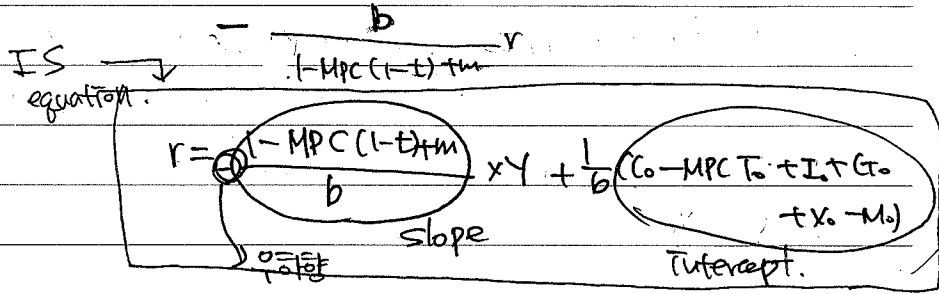 - b / 1-MPC(1-t)+m r
IS →
equation.
r = - 1-MPC(1-t)+m / b xY + 1/b (C₀ - MPC T₀ + I₀ + G₀
+ X₀ - M₀)
slope
우하향
Intercept.